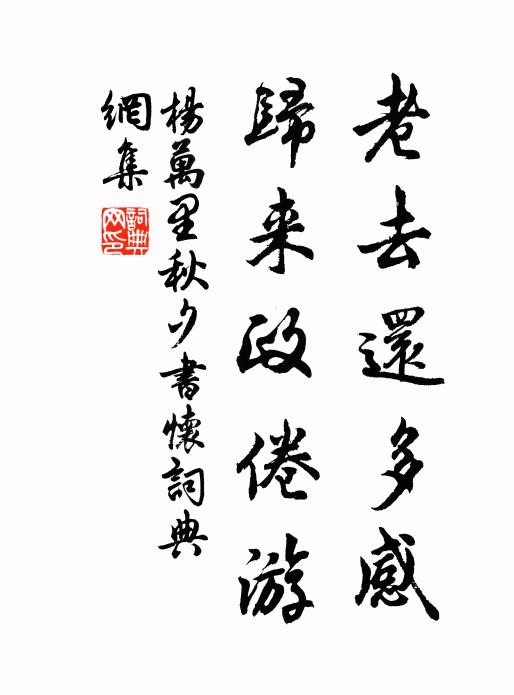 老去還多感
歸来政倦游
楊萬里秋夕書懷詞典
網集
詞典
网印